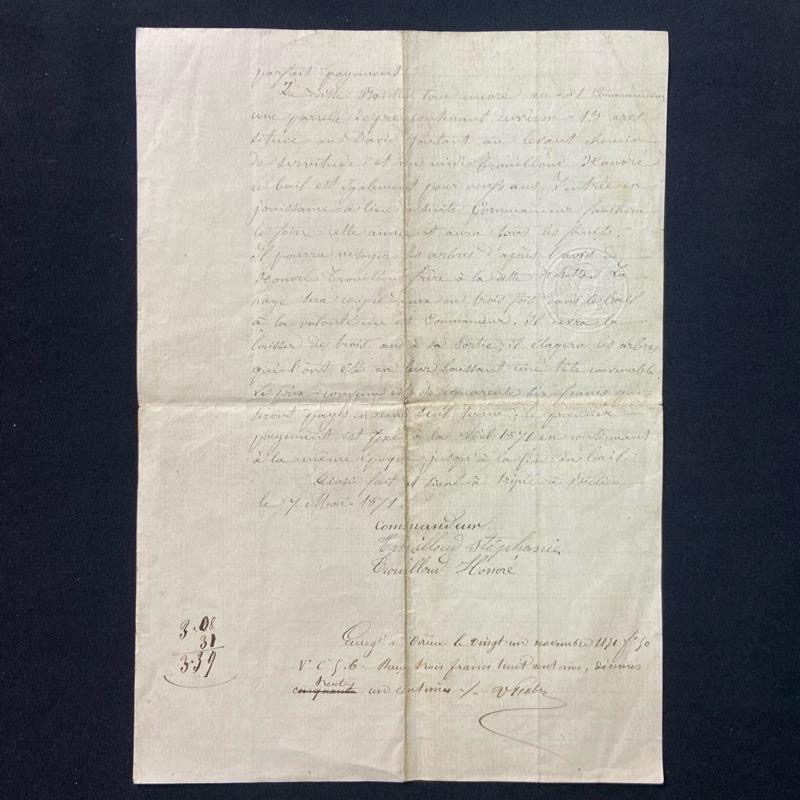 parfait payement.
La dite loue encore au dit Commandeur
une parcelle de pré contenant environ 15 ares
située au David joutant au levant chemin
de servitude et au midi Trouilloud Honoré
ce bail est également pour neuf ans. L'entrée en
jouissance a lieu de suite Commandeur fauchera
le foin cette année et aura tous les fruits.
Il pourra les arbres d'après l'avis de
Honoré Trouilloud frère à la dite La
haye sera coupée deux ou trois fois dans le bail
à la volonté du dit Commandeur. il devra la
laisser de trois ans à sa sortie; il élagera les arbres
qui l'ont été en leur laissant une tête convenable
Le prix convenu est de quarante six francs qui
seront payés en un seul terme; le premier
payement est fixé à la Noël 1871 en continuant
à la même époque jusqu'à la fin du bail.
Ainsi fait et signé à triple à
le 7 Mai 1871.
Commandeur
Trouilloud Stéphanie
Trouilloud Honoré
3.08
31
3.39
Enregé à le vingt un novembre 1871 fo 50
Vo C 5.6. Reçu trois francs huit centimes, décimes
trente
cinquante un centimes